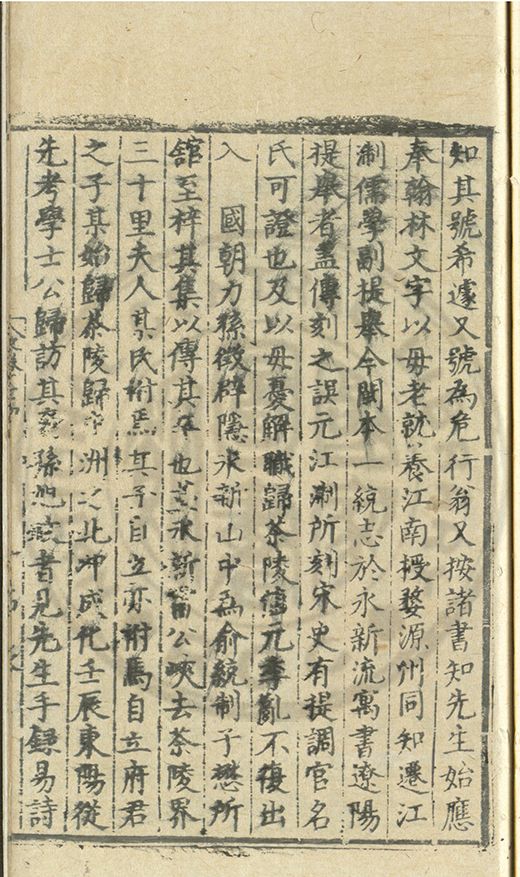 知其號希蘧又號為危行翁又按諸書知先生始應
奉翰林文字以母老就養江南授婺源州同知遷江
浙儒學副提舉今閩本一統志於永新流寓書遼陽
提舉者盖傳刻之誤元江浙所刻宋史有提調官名
氏可證也及以母憂解職歸茶陵值元季亂不復出
入 國朝力辭徵辟隱永新山中為俞統制子懋所
舘至梓其集以傳其卒也葬永新富公峽去茶陵界
三十里夫人某氏附焉其子自立亦附焉自立府君
之子某始歸茶陵歸中洲之北冲成化壬辰東陽從
先考學士公歸訪其裔孫 書見先生手錄易詩